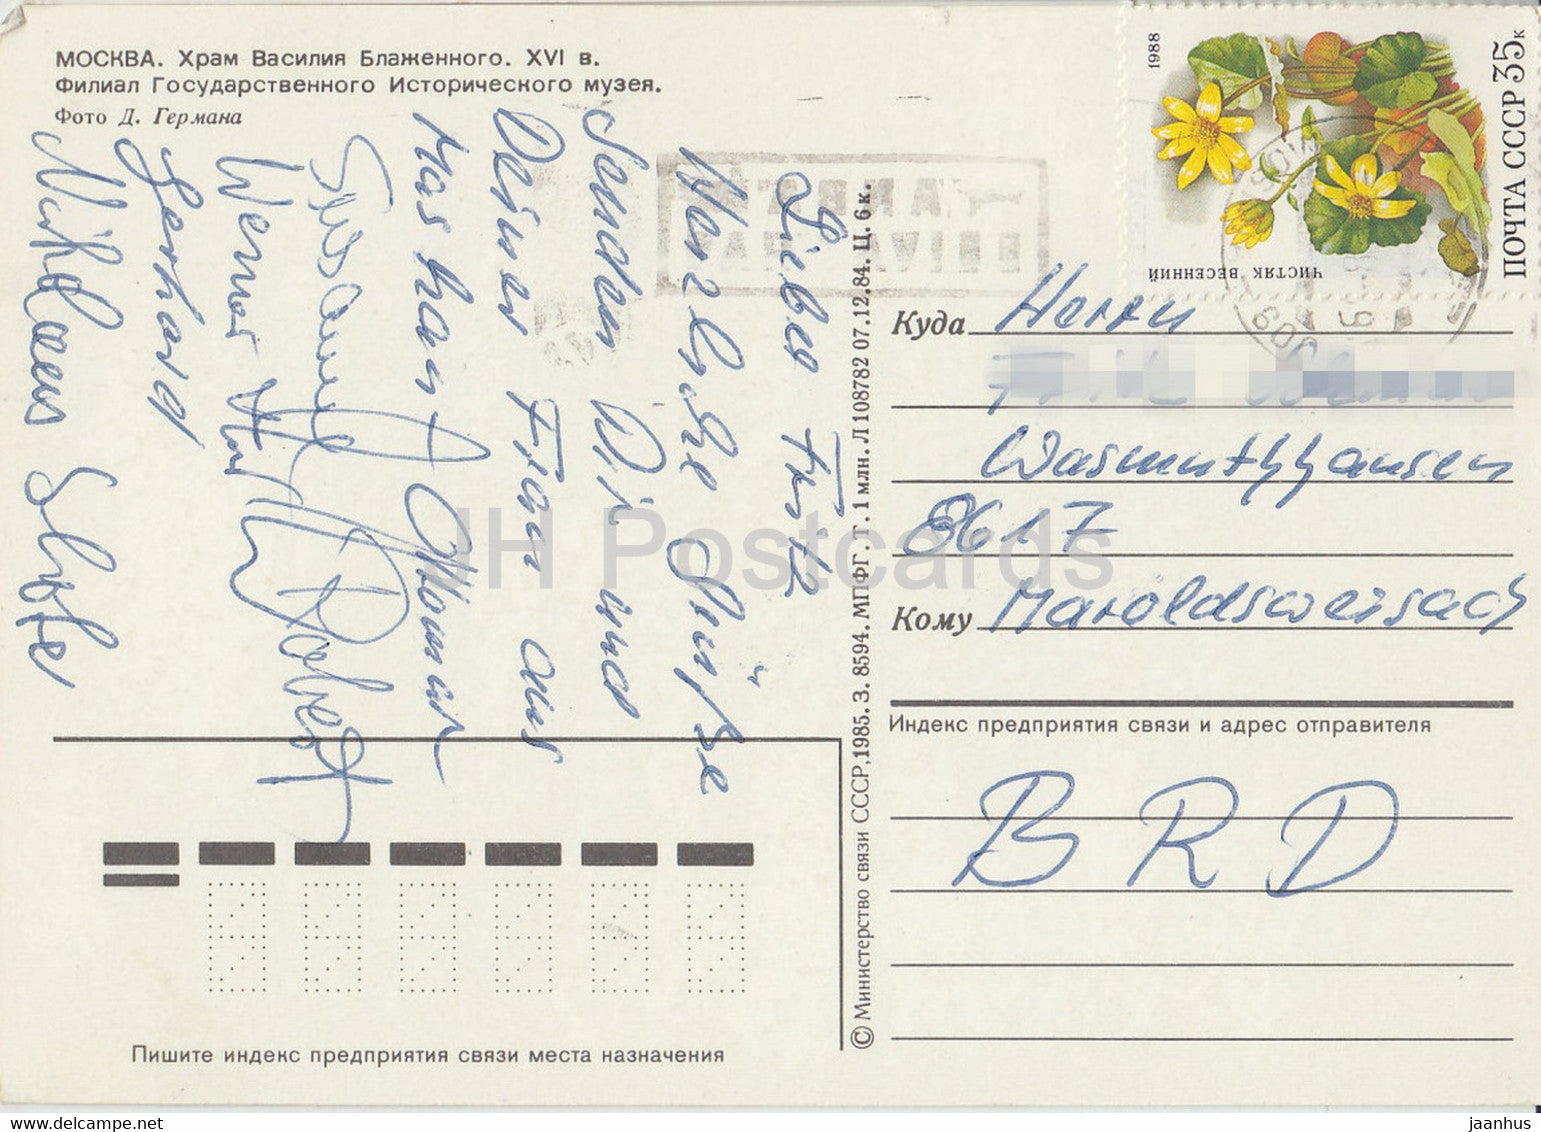 МОСКВА. Храм Василия Блаженного. XVI в.
Филиал Государственного Исторического музея.
Фото Д. Германа
Lieber Fritz
Herzliche Grüße
senden Dir und
Deiner Frau aus
Gerhard
Werner
Robert
1988
ПОЧТА СССР 35к
ЧИСТЯК ВЕСЕННИЙ
Куда Herrn
Wasmuthhausen
8617
Кому Maroldsweisach
Индекс предприятия связи и адрес отправителя
BRD
© Министерство связи СССР,1985. З. 8594. МПФГ. Г. 1 млн. Л 108782 07.12.84. Ц. 6 к.
Пишите индекс предприятия связи места назначения
JH Postcards
www.delcampe.net
jaanhus